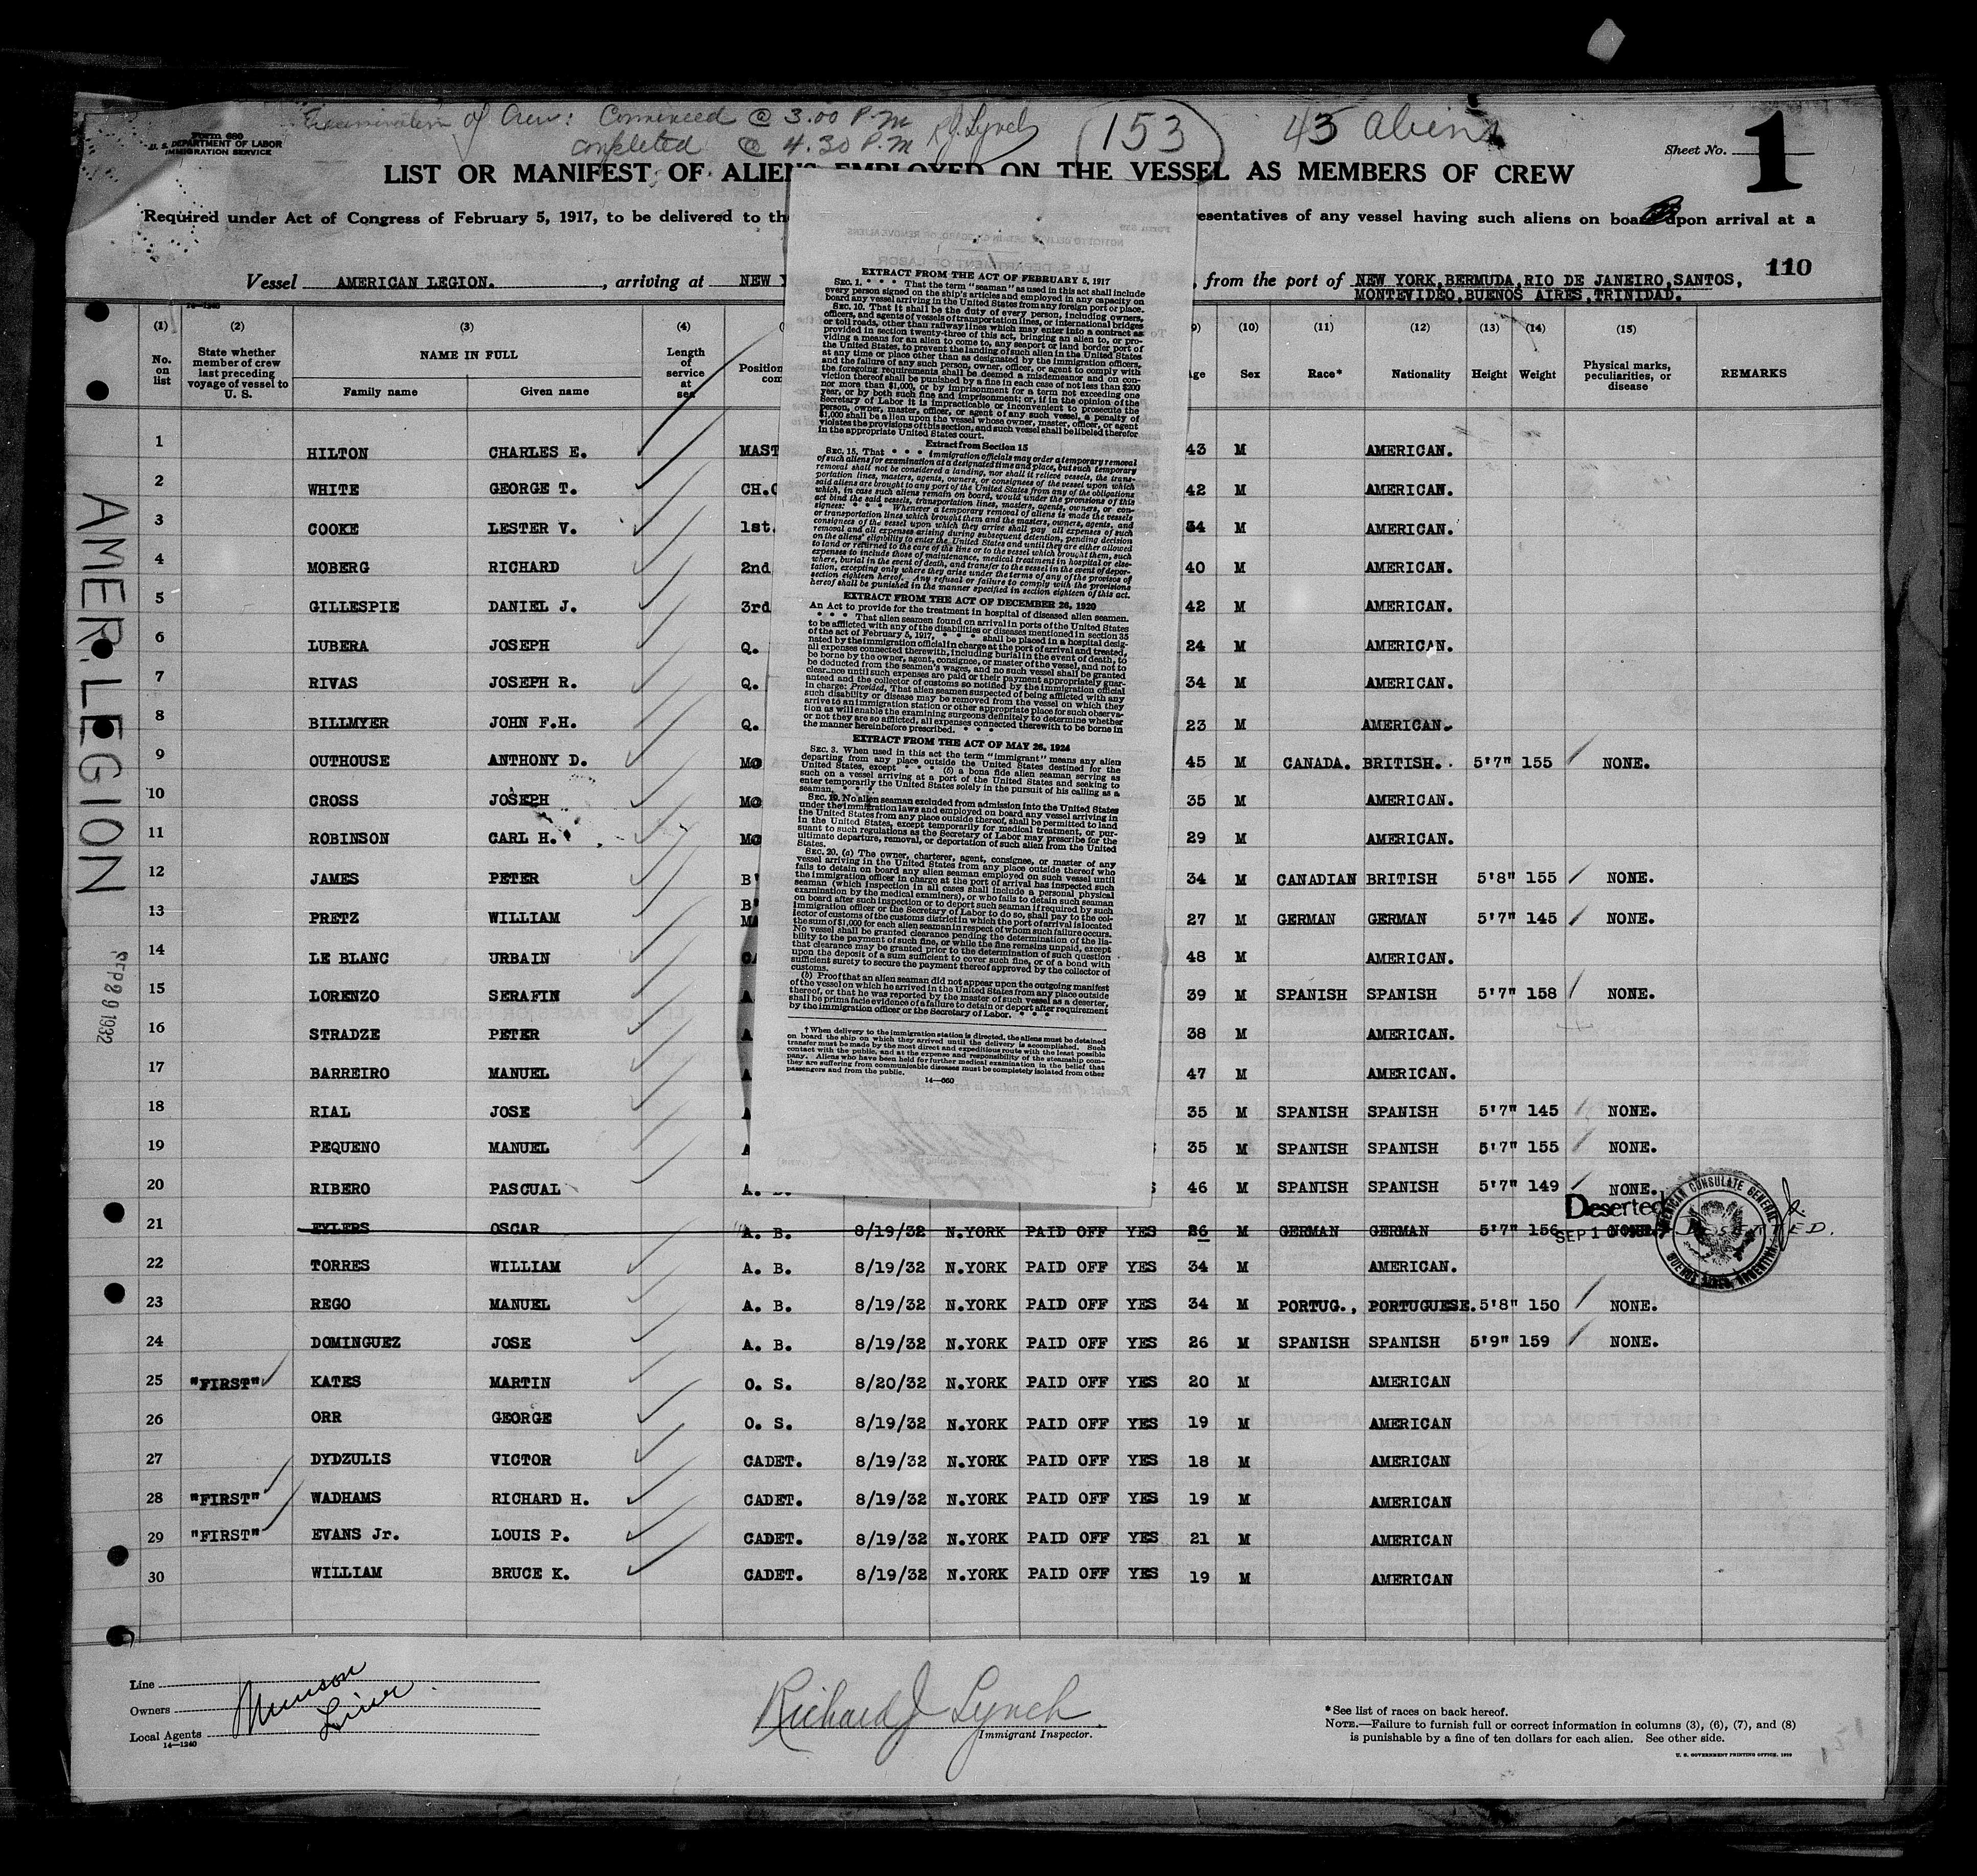 Examination of Crew: Commenced @ 3.00 P.M
completed @ 4.30 P.M R.J. Lynch
153
45 aliens
Form 680
U. S. DEPARTMENT OF LABOR
IMMIGRATION SERVICE
Sheet No. 1
LIST OR MANIFEST OF ALIENS EMPLOYED ON THE VESSEL AS MEMBERS OF CREW
Required under Act of Congress of February 5, 1917, to be delivered to th
esentatives of any vessel having such aliens on board upon arrival at a
110
Vessel AMERICAN LEGION. , arriving at NEW Y
, from the port of NEW YORK,BERMUDA,RIO DE JANEIRO,SANTOS,
MONTEVIDEO,BUENOS AIRES,TRINIDAD.
14-1240
(1) (2) (3) (4) (10) (11) (12) (13) (14) (15)
No. on list
State whether member of crew last preceding voyage of vessel to U. S.
NAME IN FULL
Family name Given name
Length of service at sea
Position
com
Age Sex Race* Nationality Height Weight
Physical marks, peculiarities, or disease
REMARKS
1 HILTON CHARLES E. MAST 43 M AMERICAN.
2 WHITE GEORGE T. CH.O 42 M AMERICAN.
3 COOKE LESTER V. 1st. 34 M AMERICAN.
4 MOBERG RICHARD 2nd 40 M AMERICAN.
5 GILLESPIE DANIEL J. 3rd 42 M AMERICAN.
6 LUBERA JOSEPH Q. 24 M AMERICAN.
7 RIVAS JOSEPH R. Q. 34 M AMERICAN.
8 BILLMYER JOHN F.H. Q. 23 M AMERICAN.
9 OUTHOUSE ANTHONY D. MO 45 M CANADA. BRITISH. 5'7" 155 NONE.
10 CROSS JOSEPH MO 35 M AMERICAN.
11 ROBINSON CARL H. MO 29 M AMERICAN.
12 JAMES PETER B' 34 M CANADIAN BRITISH 5'8" 155 NONE.
13 PRETZ WILLIAM B' MA 27 M GERMAN GERMAN 5'7" 145 NONE.
14 LE BLANC URBAIN CA 48 M AMERICAN.
15 LORENZO SERAFIN A 39 M SPANISH SPANISH 5'7" 158 NONE.
16 STRADZE PETER A 38 M AMERICAN.
17 BARREIRO MANUEL A 47 M AMERICAN.
18 RIAL JOSE A 35 M SPANISH SPANISH 5'7" 145 NONE.
19 PEQUENO MANUEL A 35 M SPANISH SPANISH 5'7" 155 NONE.
20 RIBERO PASCUAL A. B. 46 M SPANISH SPANISH 5'7" 149 NONE.
21 EYLERS OSCAR A. B. 8/19/32 N.YORK PAID OFF YES 26 M GERMAN GERMAN 5'7" 156 NONE. DESERTED.
Deserted
SEP 10 1932
AMERICAN CONSULATE GENERAL
BUENOS AIRES, ARGENTINA
22 TORRES WILLIAM A. B. 8/19/32 N.YORK PAID OFF YES 34 M AMERICAN.
23 REGO MANUEL A. B. 8/19/32 N.YORK PAID OFF YES 34 M PORTUG., PORTUGUESE. 5'8" 150 NONE.
24 DOMINGUEZ JOSE A. B. 8/19/32 N.YORK PAID OFF YES 26 M SPANISH SPANISH 5'9" 159 NONE.
25 "FIRST" KATES MARTIN O. S. 8/20/32 N.YORK PAID OFF YES 20 M AMERICAN
26 ORR GEORGE O. S. 8/19/32 N.YORK PAID OFF YES 19 M AMERICAN
27 DYDZULIS VICTOR CADET. 8/19/32 N.YORK PAID OFF YES 18 M AMERICAN
28 "FIRST" WADHAMS RICHARD H. CADET. 8/19/32 N.YORK PAID OFF YES 19 M AMERICAN
29 "FIRST" EVANS Jr. LOUIS P. CADET. 8/19/32 N.YORK PAID OFF YES 21 M AMERICAN
30 WILLIAM BRUCE K. CADET. 8/19/32 N.YORK PAID OFF YES 19 M AMERICAN
AMER. LEGION
SEP 29 1932
EXTRACT FROM THE ACT OF FEBRUARY 5, 1917
SEC. 1. * * * That the term "seaman" as used in this act shall include
every person signed on the ship's articles and employed in any capacity on
board any vessel arriving in the United States from any foreign port or place.
SEC. 10. That it shall be the duty of every person, including owners,
officers, and agents of vessels of transportation lines, or international bridges
or toll roads, other than railway lines which may enter into a contract as
provided in section twenty-three of this act, bringing an alien to, or pro-
viding a means for an alien to come to, any seaport or land border port of
the United States, to prevent the landing of such alien in the United States
at any time or place other than as designated by the immigration officers,
and the failure of any such person, owner, officer, or agent to comply with
the foregoing requirements shall be deemed a misdemeanor and on con-
viction thereof shall be punished by a fine in each case of not less than $200
nor more than $1,000, or by imprisonment for a term not exceeding one
year, or by both such fine and imprisonment; or, if in the opinion of the
Secretary of Labor it is impracticable or inconvenient to prosecute the
person, owner, master, officer, or agent of any such vessel, a penalty of
$1,000 shall be a lien upon the vessel whose owner, master, officer, or agent
violates the provisions of this section, and such vessel shall be libeled therefor
in the appropriate United States court.
Extract from Section 15
SEC. 15. That * * * immigration officials may order a temporary removal
of such aliens for examination at a designated time and place, but such temporary
removal shall not be considered a landing, nor shall it relieve vessels, the trans-
portation lines, masters, agents, owners, or consignees of the vessel upon which
said aliens are brought to any port of the United States from any of the obligations
which, in case such aliens remain on board, would under the provisions of this
act bind the said vessels, transportation lines, masters, agents, owners, or con-
signees: * * * Whenever a temporary removal of aliens is made the vessels
or transportation lines which brought them and the masters, owners, agents, and
consignees of the vessel upon which they arrive shall pay all expenses of such
removal and all expenses arising during subsequent detention, pending decision
on the aliens' eligibility to enter the United States and until they are either allowed
to land or returned to the care of the line or to the vessel which brought them, such
expenses to include those of maintenance, medical treatment in hospital or else-
where, burial in the event of death, and transfer to the vessel in the event of depor-
tation, excepting only where they arise under the terms of any of the provisos of
section eighteen hereof. Any refusal or failure to comply with the provisions
hereof shall be punished in the manner specified in section eighteen of this act.
EXTRACT FROM THE ACT OF DECEMBER 26, 1920
An Act to provide for the treatment in hospital of diseased alien seamen.
* * * That alien seamen found on arrival in ports of the United States
to be afflicted with any of the disabilities or diseases mentioned in section 35
of the act of February 5, 1917, * * * shall be placed in a hospital desig-
nated by the immigration official in charge at the port of arrival and treated,
all expenses connected therewith, including burial in the event of death, to
be borne by the owner, agent, consignee, or master of the vessel, and not to
be deducted from the seamen's wages, and no such vessel shall be granted
clearance until such expenses are paid or their payment appropriately guar-
anteed and the collector of customs so notified by the immigration official
in charge: Provided, That alien seamen suspected of being afflicted with any
such disability or disease may be removed from the vessel on which they
arrive to an immigration station or other appropriate place for such observa-
tion as will enable the examining surgeons definitely to determine whether
or not they are so afflicted, all expenses connected therewith to be borne in
the manner hereinbefore prescribed. * * *
EXTRACT FROM THE ACT OF MAY 26, 1924
SEC. 3. When used in this act the term "immigrant" means any alien
departing from any place outside the United States destined for the
United States, except * * * (5) a bona fide alien seaman serving as
such on a vessel arriving at a port of the United States and seeking to
enter temporarily the United States solely in the pursuit of his calling as a
seaman. * * *
SEC. 19. No alien seaman excluded from admission into the United States
under the immigration laws and employed on board any vessel arriving in
the United States from any place outside thereof, shall be permitted to land
in the United States, except temporarily for medical treatment, or pur-
suant to such regulations as the Secretary of Labor may prescribe for the
ultimate departure, removal, or deportation of such alien from the United
States.
SEC. 20. (a) The owner, charterer, agent, consignee, or master of any
vessel arriving in the United States from any place outside thereof who
fails to detain on board any alien seaman employed on such vessel until
the immigration officer in charge at the port of arrival has inspected such
seaman (which inspection in all cases shall include a personal physical
examination by the medical examiners), or who fails to detain such seaman
on board after such inspection or to deport such seaman if required by such
immigration officer or the Secretary of Labor to do so, shall pay to the col-
lector of customs of the customs district in which the port of arrival is located
the sum of $1,000 for each alien seaman in respect of whom such failure occurs.
No vessel shall be granted clearance pending the determination of the lia-
bility to the payment of such fine, or while the fine remains unpaid, except
that clearance may be granted prior to the determination of such question
upon the deposit of a sum sufficient to cover such fine, or of a bond with
sufficient surety to secure the payment thereof approved by the collector of
customs.
(b) Proof that an alien seaman did not appear upon the outgoing manifest
of the vessel on which he arrived in the United States from any place outside
thereof, or that he was reported by the master of such vessel as a deserter,
shall be prima facie evidence of a failure to detain or deport after requirement
by the immigration officer or the Secretary of Labor. * * *
† When delivery to the immigration station is directed, the aliens must be detained
on board the ship on which they arrived until the delivery is accomplished. Such
transfer must be made by the most direct and expeditious route with the least possible
contact with the public, and at the expense and responsibility of the steamship com-
pany. Aliens who have been held for further medical examination in the belief that
they are suffering from communicable diseases must be completely isolated from other
passengers and from the public.
14—660
Line
Owners
Local Agents
Munson
Line
14—1240
Richard J Lynch
Immigrant Inspector.
*See list of races on back hereof.
NOTE.—Failure to furnish full or correct information in columns (3), (6), (7), and (8)
is punishable by a fine of ten dollars for each alien. See other side.
U. S. GOVERNMENT PRINTING OFFICE, 1929